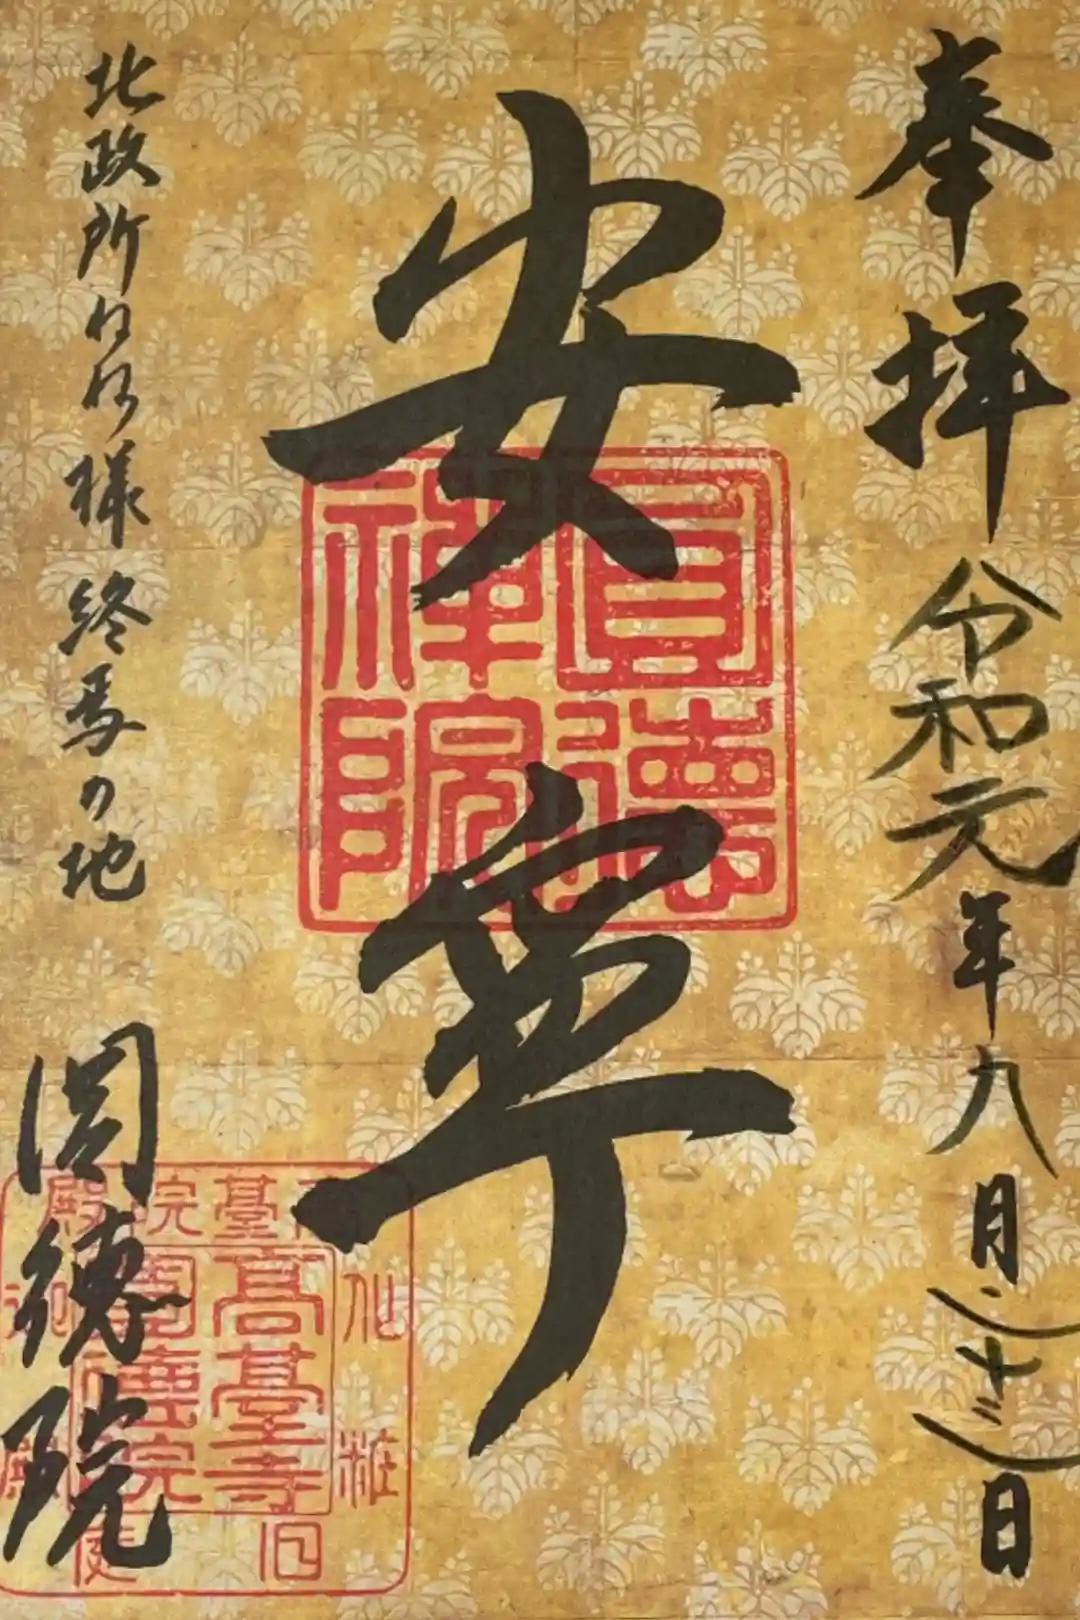 奉拝 令和元年九月(十三)日
安寧
圓德禪院
北政所ねね様 終焉の地
圓徳院
高臺寺
圓德院